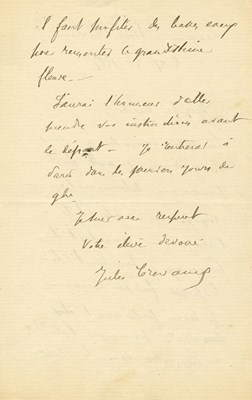 il faut profiter des basses eaux
pour remonter le grand
fleuve.
J'aurai l'honneur d'aller
prendre vos instructions avant
le départ. Je rentrerai à
Paris dans les premiers jours de
Je suis avec respect
Votre élève dévoué
Jules Crevaux